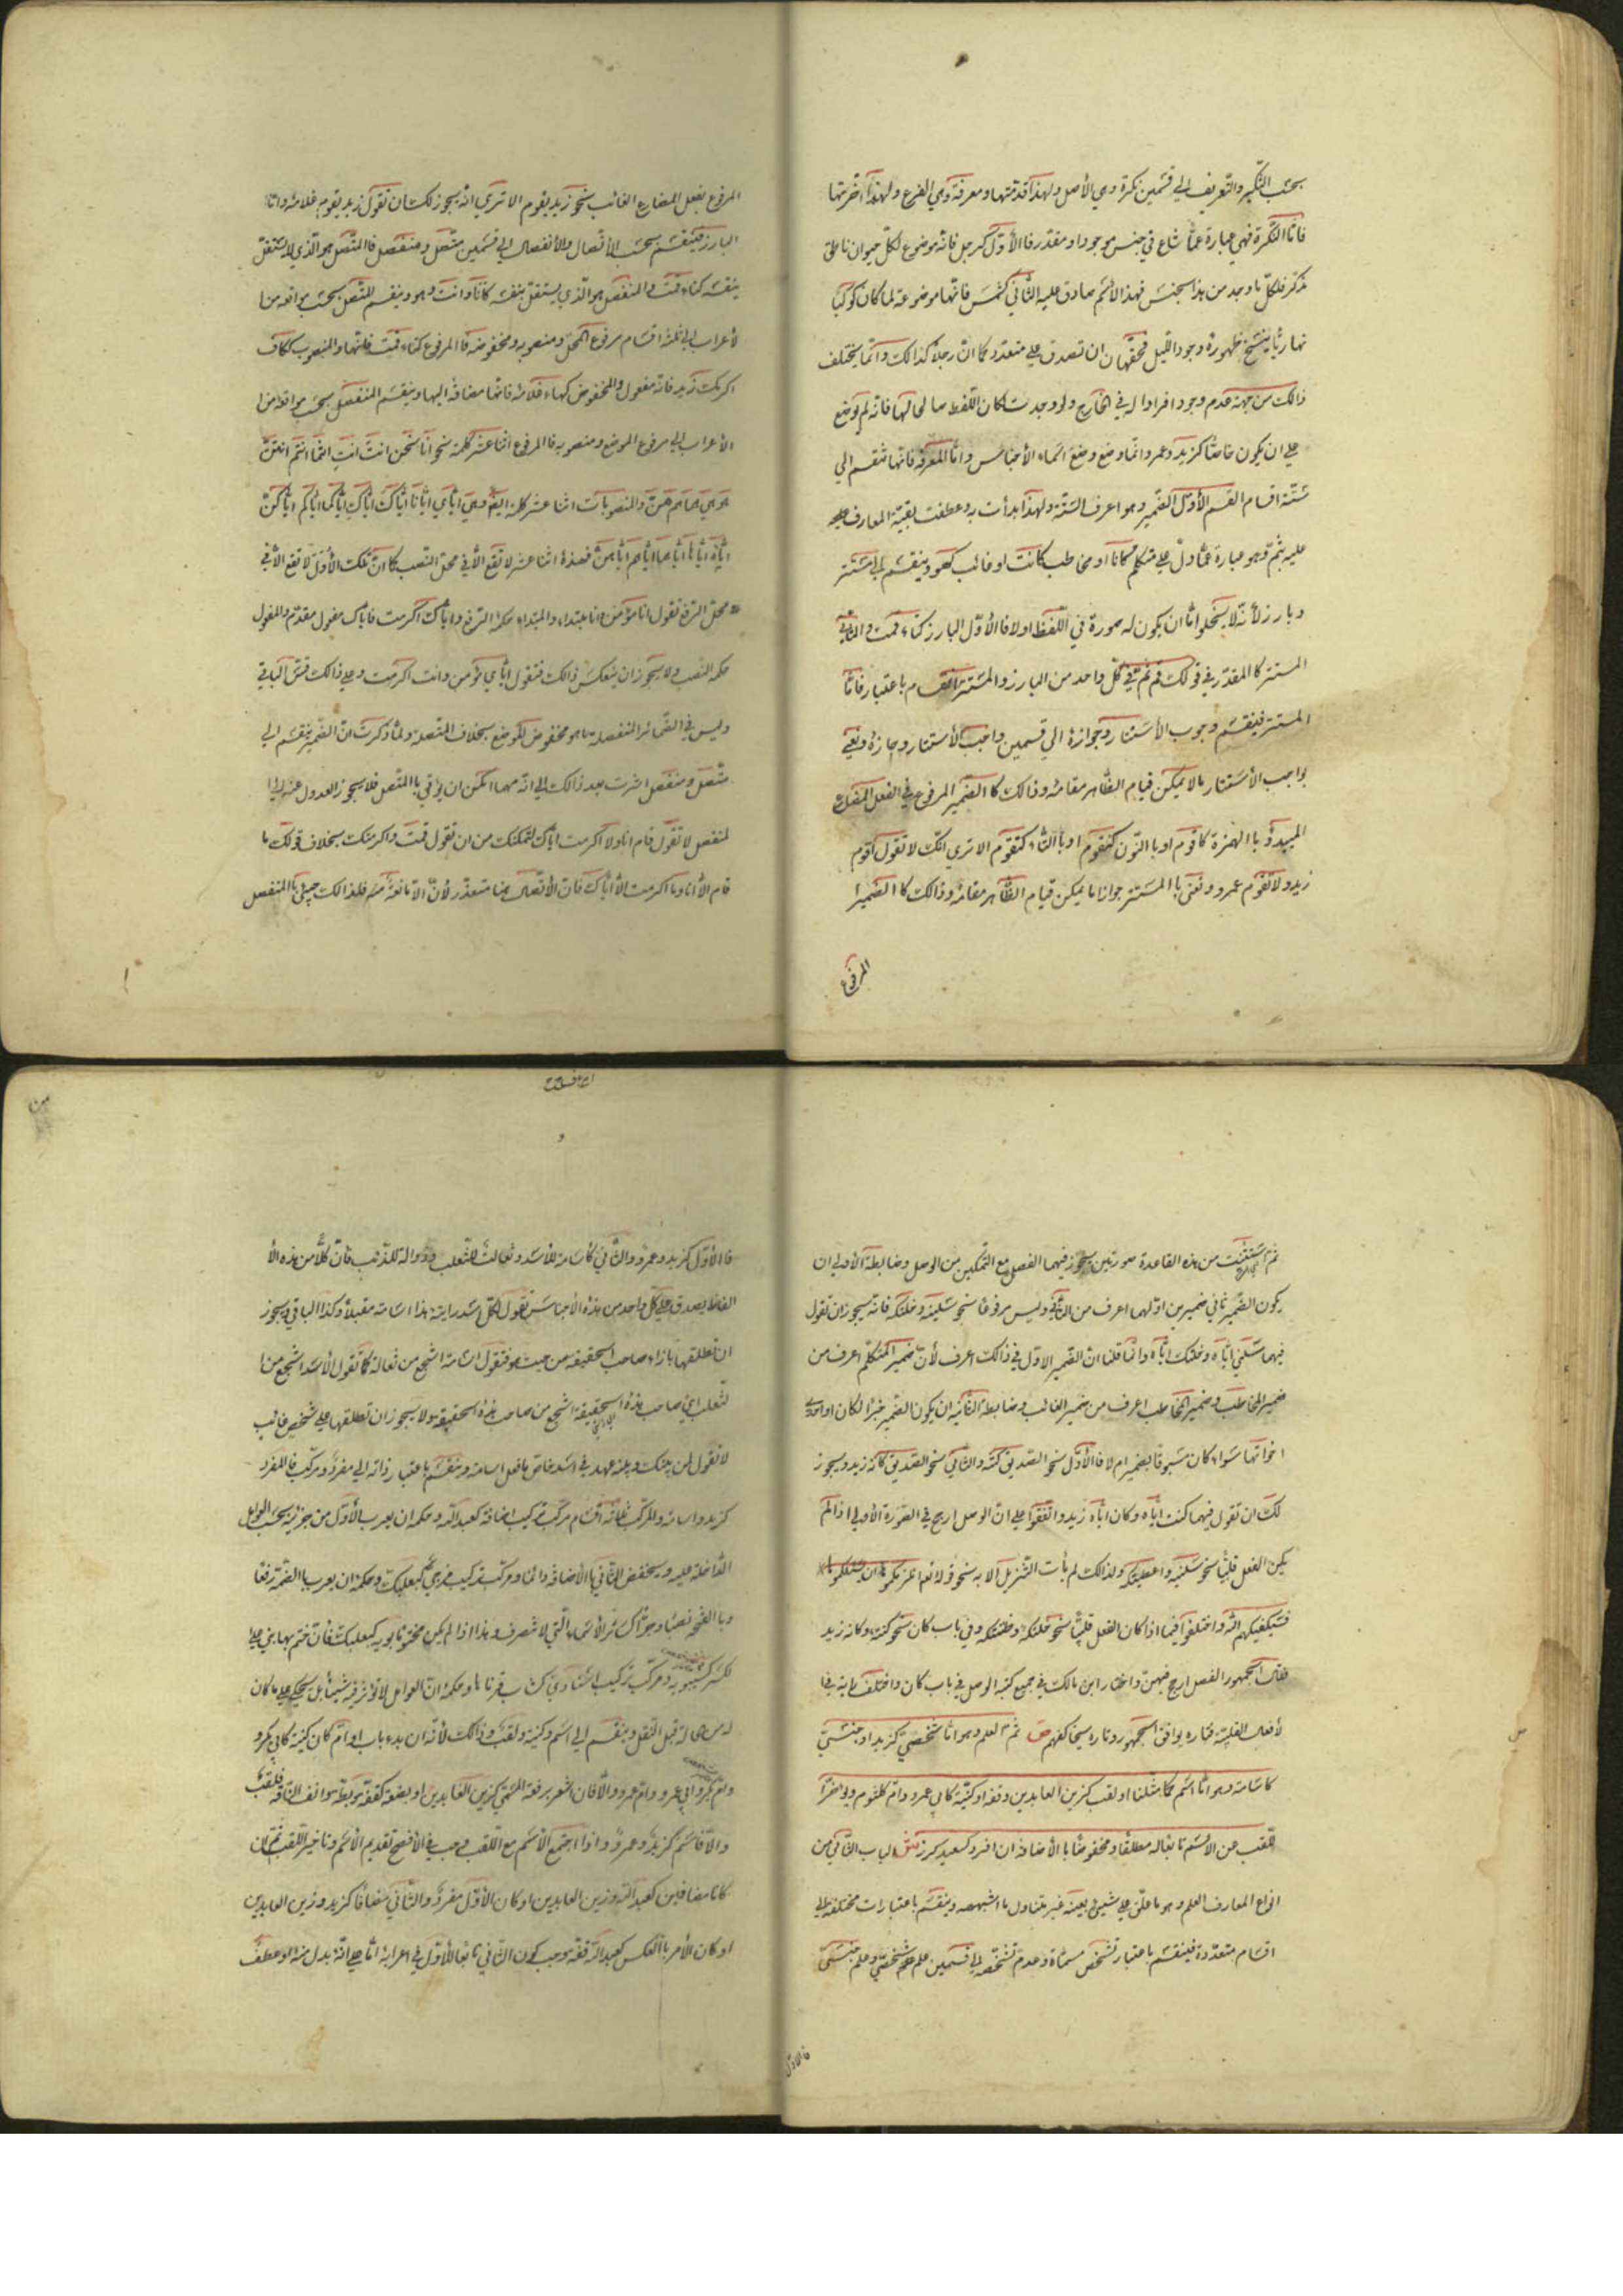 بحسب التنكير والتعريف الي قسمين نكرة وهي الأصل ولهذا قدمتها ومعرفة وهي الفرع ولهذا أخرتها
فامّا النكرة فهي عبارة عمّا شاع في جنس موجود او مقدر فا الأوّل كرجل فانه موضوع لكلّ حيوان ناطق
مذكر فكلّ ما وجد من هذا الجنس فهذا الأسم صادق عليه الثاني كشمس فانها موضوعة لما كان كوكبا
نهاريّا ينسخ ظهوره وجود الليل فحقها ان تصدق علي متعدد كما انّ رجلا كذالك وانّما يختلف
ذالك من جهة عدم وجود افراد اله في الخارج ولو وجدت لكان اللفظ صالحا لها فانه لم يوضع
علي ان يكون خاصّا كزيد وعمرو انّما وضع وضع اسماء الأجناس وامّا المعرفة فانها تنقسم الي
ستّة اقسام القسم الأوّل الضّمير وهو اعرف الستة ولهذا بدأت به وعطفت بقية المعارف
عليه بثمّ وهو عبارة عمّا دلّ علي متكلم كانا او مخاطب كانت او غائب كهو وينقسم الي مستتر
وبارز لأنّه لا يخلوا امّا ان يكون له صورة في اللّفظ اولا فا الأوّل البارز كتاء قمت والثاني
المستتر كا المقدّر في قولك قم ثمّ في كلّ واحد من البارز والمستتر انقسام باعتبار فامّا
المستتر فينقسم وجوب الأستتار وجوازه الي قسمين واجب الأستتار وجازه ونعني
بواجب الأستتار ما لا يمكن قيام الظّاهر مقامه وذالك كا الضّمير المرفوع في الفعل المضارع
المبدوّ با الهمزة كاقوم او با النّون كنقوم او با التاء كتقوم الا تري انّك لا تقول اقوم
زيد ولا تقوم عمرو ونعني با المستتر جوازا ما يمكن قيام الظّاهر مقامه وذالك كا الضمير
المرفوع
المرفوع بفعل المضارع الغائب نحو زيد يقوم الا تري انّه يجوز لك ان تقول زيد يقوم غلامه وامّا
البارز فينقسم بحسب الأتّصال والأنفصال الي قسمين متصل ومنفصل فا المتصل هو الّذي لا يستقلّ
بنفسه كتاء قمت والمنفصل هو الّذي يستقلّ بنفسه كانا وانت وهو وينقسم المتصل بحسب مواقعه من ا
لأعراب الي ثلثة اقسام مرفوع المحل ومنصوبه ومخفوضه فا المرفوع كتاء قمت فانها والمنصوب ككاف
اكرمك زيد فانه مفعول والمخفوض كهاء غلامه فانها مضافة اليها وينقسم المنفصل بحسب مواقعه من ا
الأعراب الي مرفوع الموضع ومنصوبه فا المرفوع اثنا عشر كلمة نحو انا نحن انت انت انتما انتم انتنّ
هو هي هما هم هنّ والمنصوبات اثنا عشر كلمة ايضا وهي ايّاي ايّانا ايّاك ايّاك ايّاكما ايّاكم ايّاكنّ
ايّاه ايّاها ايّاهما ايّاهم ايّاهنّ فهذه اثنا عشر لا تقع الّا في محل النصب كما انّ تلك الأوّل لا تقع الّا في
محل الرفع تقول انا مؤمن فانا مبتداء والمبتداء حكمه الرفع وايّاك اكرمت فايّاك مفعول مقدّم والمفعول
حكمه النّصب ولا يجوز ان ينعكس ذالك فتقول ايّاي مؤمن وانت اكرمت وعلي ذالك فقس الباقي
وليس في الضّمائر المنفصلة ما هو مخفوض الموضع بخلاف المتصلة ولمّا ذكرت انّ الضّمير ينقسم الي
متّصل ومنفصل اشرت بعد ذالك الي انّه مهما امكن ان يؤتي با المتّصل فلا يجوز العدول عنه الي ا
لمنفصل لا تقول قام انا ولا اكرمت ايّاك لتمكنك من ان تقول قمت واكرمتك بخلاف قولك ما
قام الّا أنا وما اكرمت الّا ايّاك فان الأتّصال هنا متعذّر لأنّ الّا مانعة منه فلذالك جيئ با المنفصل
ثم استثنيت من هذه القاعدة صورتين يجوز فيهما الفصل مع التّمكين من الوصل وضابطة الأولي ان
يكون الضّمير ثاني ضميرين اوّلهما اعرف من الثاني وليس مرفوعا نحو سلنيه وخلتكه فانه يجوز ان تقول
فيهما سلني ايّاه وخلتك ايّاه وانّما قلنا انّ الضّمير الاوّل في ذالك اعرف لأنّ ضمير المتكلّم اعرف من
ضمير المخاطب وضمير المخاطب اعرف من ضمير الغائب وضابطة الثّانية ان يكون الضّمير خبرا لكان او احدي
اخواتها سواء كان مسبوقا بضمير ام لا فا الأوّل نحو الصّديق كنته والثّاني نحو الصّديق كانه زيد ويجوز
لك ان تقول فيهما كنت ايّاه وكان ايّاه زيد واتّفقوا علي انّ الوصل ارجح في الصّورة الأولي اذا لم
يكن الفعل قلبيّا نحو سلنيه واعطيتكه ولذالك لم يأت التّنزيل الا به نحو قوله تعا انلزمكموها ان يسئلكموها
فسيكفيكهم الله واختلفوا فيما اذا كان الفعل قلبيّا نحو خلتكه وظننتكه وفي باب كان نحو كنته وكانه زيد
فقال الجمهور الفصل ارجح فيهنّ واختار ابن مالك في جميع كتبه الوصل في باب كان واختلف رايه في ا
لأفعال القلبيّة فتاره يوافق الجمهور وتاره يخالفهم ص ثمّ العلم وهو امّا شخصيّ كزيد او جنسيّ
كاسامة وهو امّا اسم كما مثلنا او لقب كزين العابدين وقفه او كنية كابي عمرو وامّ كلثوم ويؤخّر ا
للّقب عن الاسم تابعا له مطلقا ومخفوضا با الأضافة ان افرد كسعيد كرز ش الباب الثّاني من
انواع المعارف العلم وهو ما علّق علي شيئ بعينه غير متناول ما اشبهه وينقسم باعتبارات مختلفة الي
اقسام متعدّدة فينقسم باعتبار تشخّص مسمّاه وعدم تشخّصه الي قسمين علم شخصيّ وعلم جنسيّ
فا الاوّل
فا الأوّل كزيد وعمرو والثّاني كأسامة للأسد وثعالة للثّعلب وذوالة للذّئب فانّ كلّا من هذه الأ
لفاظ يصدق علي كل واحد من هذه الأجناس تقول لكلّ اسد رايته هذا اسامة مقبلا وكذا الباقي ويجوز
ان تطلقها بازاء صاحب الحقيقة من حيث هو فتقول اسامة اشجع من ثعالة كما تقول الأسد اشجع من ا
لثعلب اي صاحب هذه الحقيقة اشجع من صاحب هذه الحقيقة ولا يجوز ان تطلقها علي شخص غائب
لا تقول لمن بينك وبينه عهد في اسد خاص ما فعل اسامة وينقسم باعتبار ذاته الي مفرد ومركّب فا المفرد
كزيد واسامة والمركّب ثلثة اقسام مركّب تركيب اضافة كعبد الله وحكمه ان يعرب الأوّل من جزئيه بحسب العوامل
الدّاخلة عليه ويخفض الثّاني با الأضافة دائما ومركّب تركيب مزجيّ كبعلبكّ وحكمه ان يعرب با الضّمة رفعا
وبا الفتحة نصبا وجرّا كسائر الأسماء الّتي لا تنصرف وهذا اذا لم يكن مختوما بويه كبعلبكّ فان ختم بها بني علي ا
لكسر كسيبويه ومركّب تركيب اسنادي كشاب قرناها وحكمه انّ العوامل لا تؤثر فيه شيئا بل يحكي علي ما كان
له من الحالة قبل النّقل وينقسم الي اسم وكنية ولقب وذالك لأنّه ان بدء باب او امّ كان كنية كابي بكر و
وامّ بكر وابي عمرو وامّ عمرو والّا فان اشعر برفعة المسمّي كزين العابدين او بضعة كقفّة وبطّة وانف النّاقة فلقب
والّا فاسم كزيد وعمرو واذا اجتمع الأسم مع اللّقب وجب في الأفصح تقديم الأسم وتاخير اللّقب ثمّ ان
كانا مضافين كعبد الله وزين العابدين او كان الأوّل مفردا والثّاني مضافا كزيد وزين العابدين
او كان الأمر با العكس كعبد الله قفّة وجب كون الثّاني تابعا للأوّل في اعرابه امّا علي انّه بدل منه او عطف